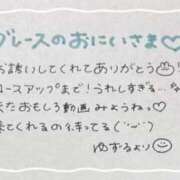 グレースのおにいさま♡
お誘いしてくれてありがとう
コースアップまで！うれしすぎる…
またおもしろ動画みようねっ♡
来てくれるの待ってる(˙︶˙)
ゆずるより